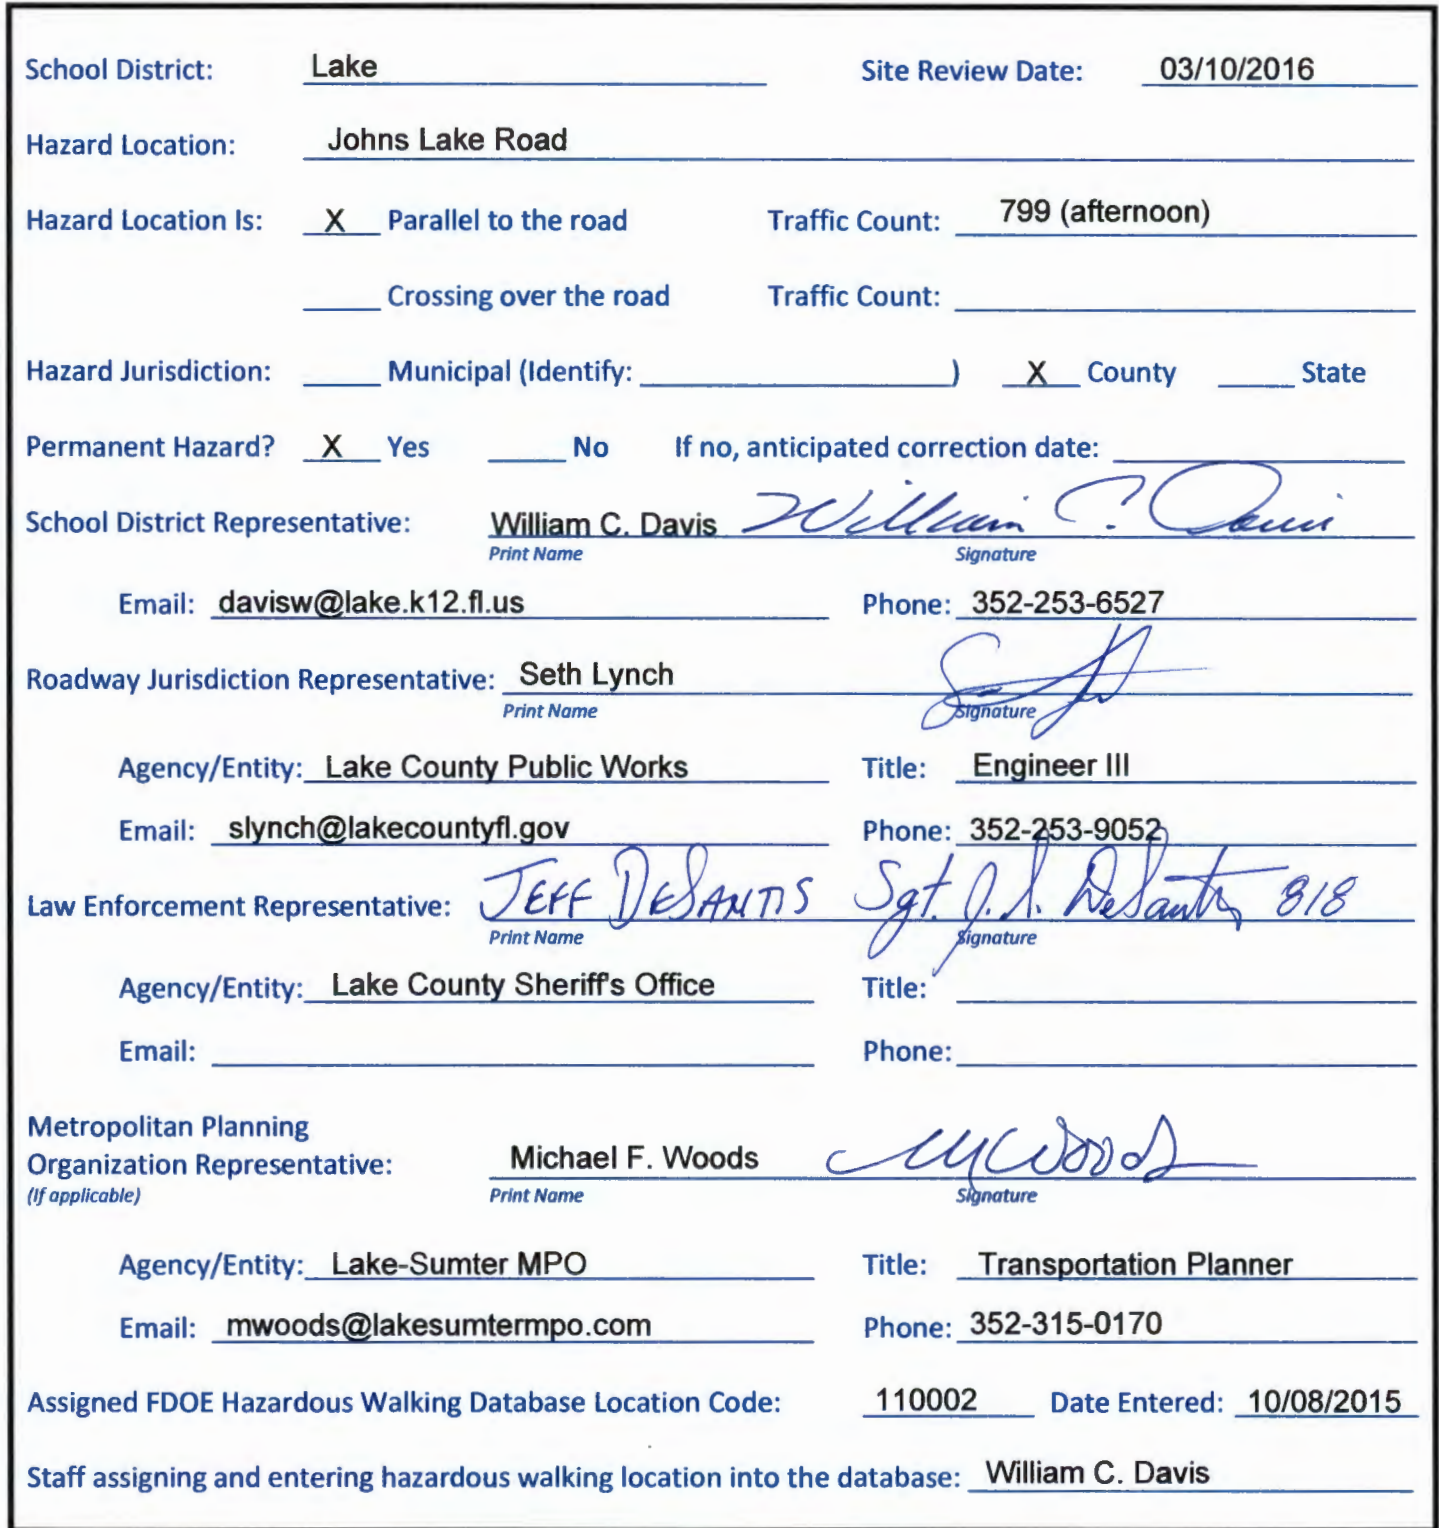 School District: Lake Site Review Date: 03/10/2016
Hazard Location: Johns Lake Road
Hazard Location Is: X Parallel to the road Traffic Count: 799 (afternoon)
Crossing over the road Traffic Count:
Hazard Jurisdiction: Municipal (Identify: ) X County State
Permanent Hazard? X Yes No If no, anticipated correction date:
School District Representative: William C. Davis William C. Davis
Print Name Signature
Email: davisw@lake.k12.fl.us Phone: 352-253-6527
Roadway Jurisdiction Representative: Seth Lynch
Print Name Signature
Agency/Entity: Lake County Public Works Title: Engineer III
Email: slynch@lakecountyfl.gov Phone: 352-253-9052
Law Enforcement Representative: JEFF DESANTIS Sgt. J. S. DeSantis 818
Print Name Signature
Agency/Entity: Lake County Sheriff's Office Title:
Email: Phone:
Metropolitan Planning
Organization Representative: Michael F. Woods MWoods
(If applicable) Print Name Signature
Agency/Entity: Lake-Sumter MPO Title: Transportation Planner
Email: mwoods@lakesumtermpo.com Phone: 352-315-0170
Assigned FDOE Hazardous Walking Database Location Code: 110002 Date Entered: 10/08/2015
Staff assigning and entering hazardous walking location into the database: William C. Davis